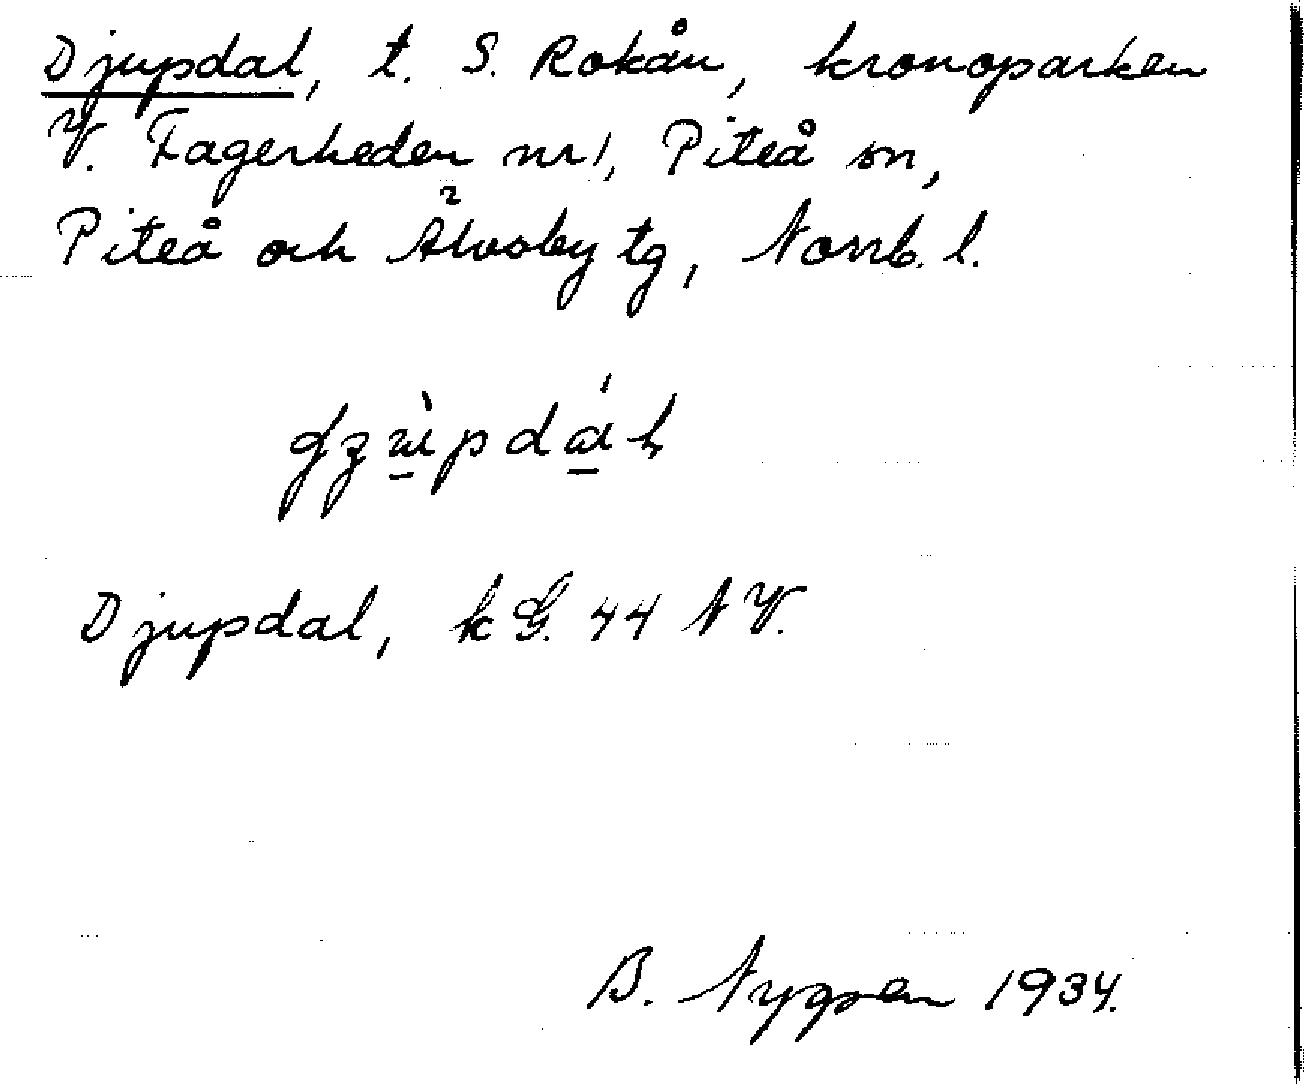 Djupdal, t. S. Rokån, kronoparken
V. Fagerheden nr 1, Piteå sn,
Piteå och Älvsby tg, Norrb. l.
Djupdal, k G. 44 NV.
B. Nygren 1934.